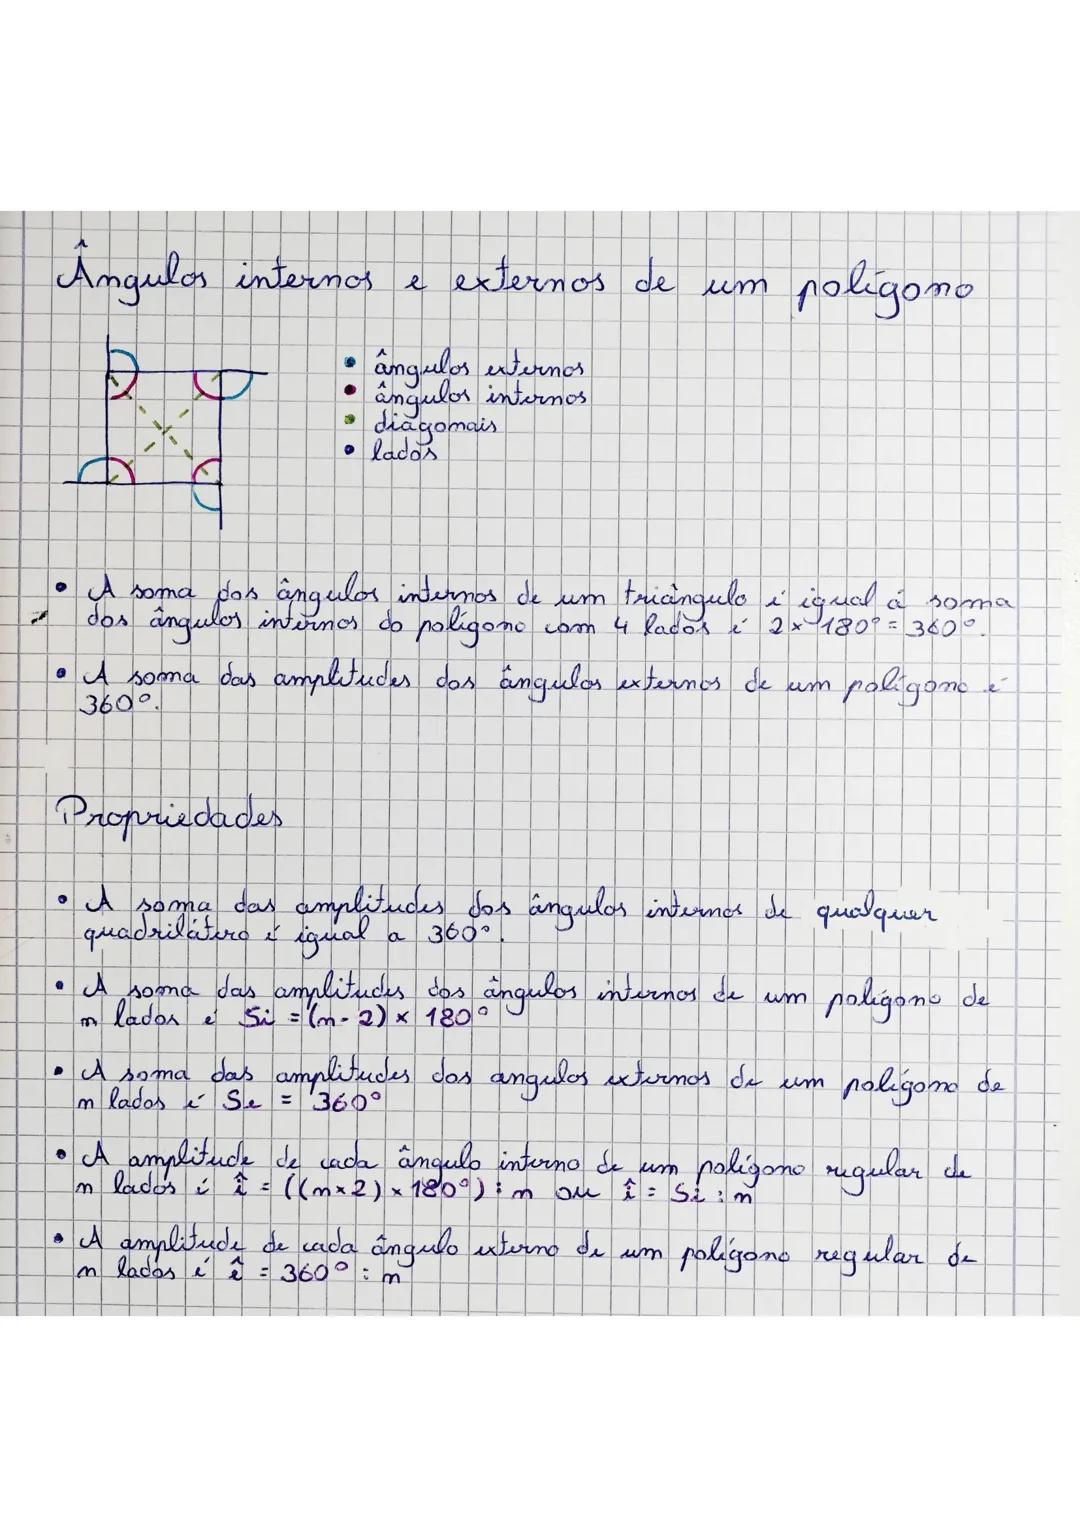 Ângulos internos e externos de um polígono
• ângulos externos
• ângulos internos
• diagonais
• lados
• A soma dos ângulos internos de um triângulo é igual á soma
dos ângulos internos do polígono com 4 lados é 2 x 180º = 360º.
• A soma das amplitudes dos ângulos externos de um polígono é
360º.
Propriedades
• A soma das amplitudes dos ângulos internos de qualquer
quadrilátero é igual a 360º.
• A soma das amplitudes dos ângulos internos de um polígono de
n lados é Si = (n - 2) x 180º
• A soma das amplitudes dos angulos externos de um polígono de
n lados é Se = 360º
• A amplitude de cada ângulo interno de um polígono regular de
n lados é î = ((n x 2) x 180º) : n ou î = Si : n
• A amplitude de cada ângulo externo de um polígono regular de
n lados é ê = 360º : n